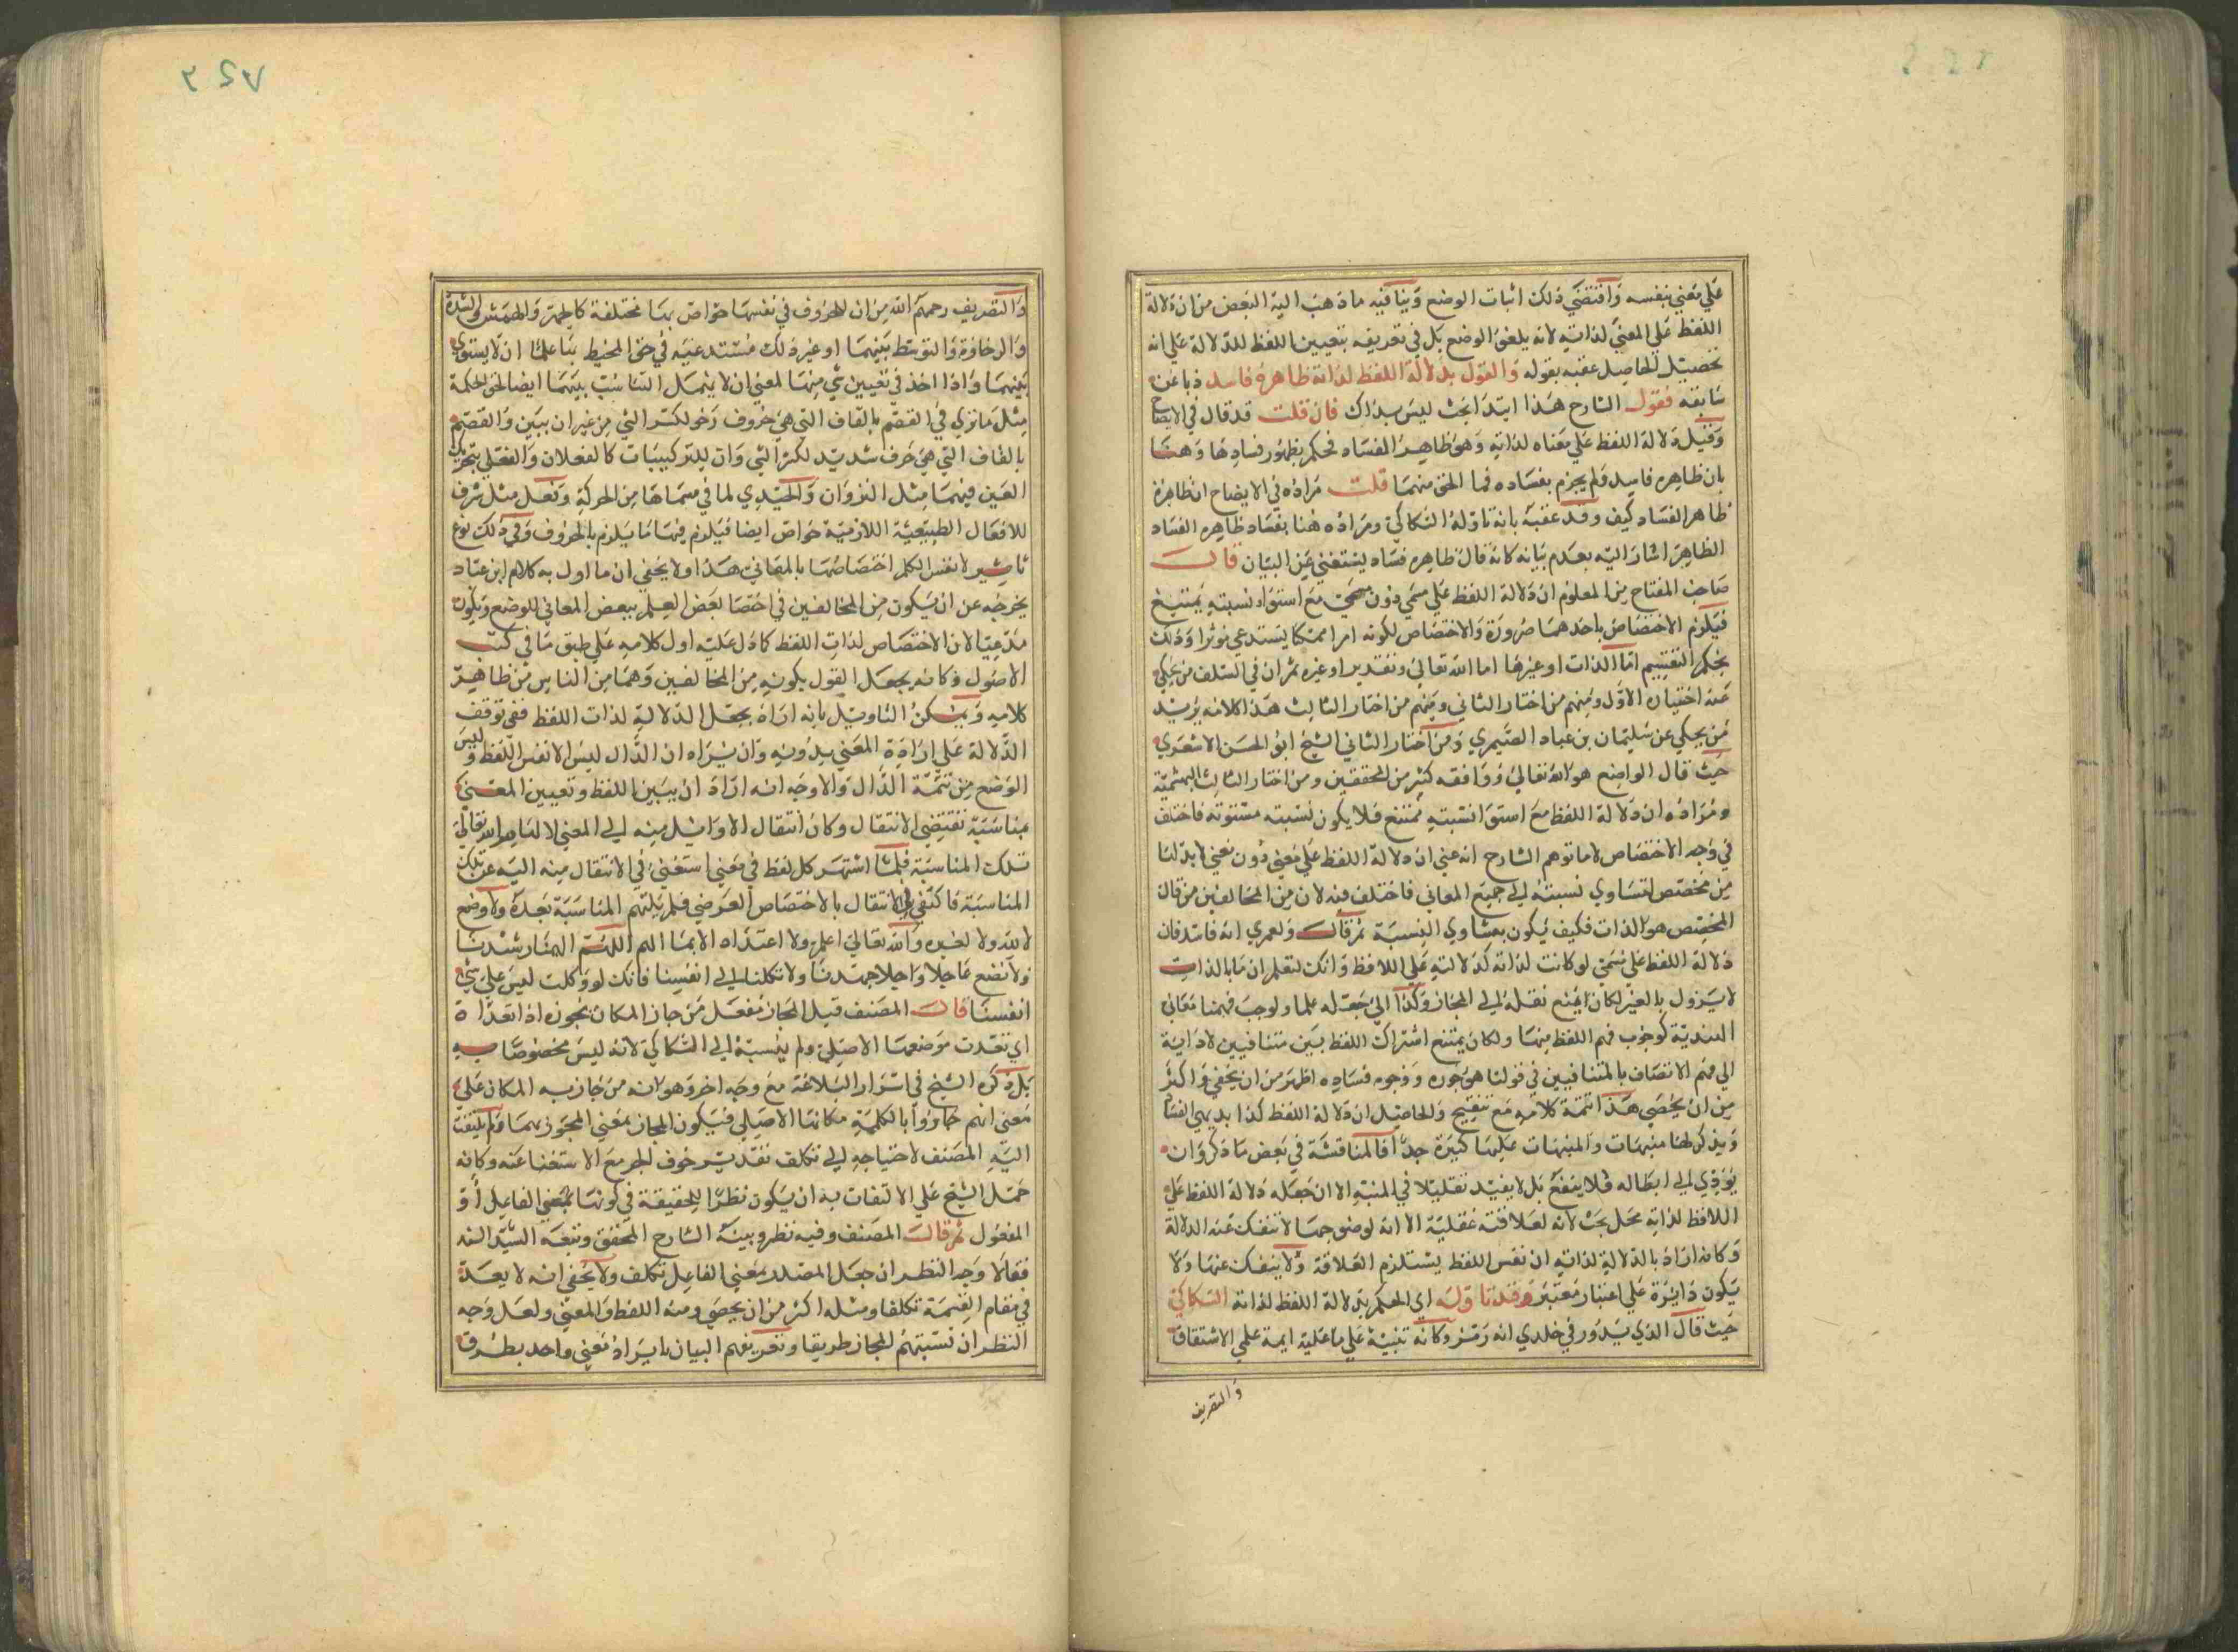 علي معني بنفسه واقتضي ذلك اثبات الوضع وينافيه ما ذهب اليه البعض من ان دلالة
اللفظ علي المعني لذاته لانه يلغي الوضع بل في تعريفه بتعيين اللفظ للدلالة علي انه
تحصيل الحاصل عقبه بقوله والقول بدلالة اللفظ لذاته ظاهره فاسد ذبا عن
سابقه فقول الشارح هذا ابتدا بحث ليس بذاك فان قلت قد قال في الايضاح
وقيل دلالة اللفظ علي معناه لذاته وهو ظاهر الفساد فحكم بظهور فسادها وههنا
بان ظاهره فاسد فلم يجزم بفساده فما الحق منهما قلت مراده في الايضاح ان ظاهره
ظاهر الفساد كيف وقد عقبه بانه تاوله السكاكي ومراده هنا بفساد ظاهره الفساد
الظاهر اشار اليه بعدم بيانه كانه قال ظاهره فساد يستغني عن البيان قال
صاحب المفتاح من المعلوم ان دلالة اللفظ علي مسمي دون مسمي مع استواء نسبته يمتنع
فيلزم الاختصاص باحدهما ضرورة والاختصاص لكونه امرا ممكنا يستدعي موثرا وذلك
بحكم التقسيم اما الذات او غيرها اما الله تعالي وتقدير او غيره ثم ان في السلف من يحكي
عنه اختيار الاول ومنهم من اختار الثاني ومنهم من اختار الثالث هذا كلامه يريد
من يحكي عن سليمان بن عباد الصيمري ومن اختار الثاني الشيخ ابو الحسن الاشعري
حيث قال الواضع هو الله تعالي ووافقه كثير من المحققين ومن اختار الثالث البهشمية
ومراده ان دلالة اللفظ مع استوا نسبته ممتنع فلا يكون نسبته مستوية فاختلف
في وجه الاختصاص لا ما توهم الشارح انه عني ان دلالة اللفظ علي معني دون معني لا بد لها
من مخصص لتساوي نسبته الي جميع المعاني فاختلف فيه لان من المخالفين من قال
المخصص هو الذات فكيف يكون بتساوي النسبة ثم قال ولعمري انه فاسد فان
دلالة اللفظ علي مسمي لو كانت لذاته كدلالته علي اللافظ وانك لتعلم ان ما بالذات
لا يزول بالغير لكان يمتنع نقله الي المجاز وكذا الي جعله علما ولوجب فهمنا معاني
الهندية كوجوب فهم اللفظ منها ولكان يمتنع اشتراك اللفظ بين متنافيين لادائه
الي فهم الاتصاف بالمتنافيين في قولنا هو جون ووجوه فساده اظهر من ان يخفي واكثر
من ان يحصي هذا تتمة كلامه مع تنقيح والحاصل ان دلالة اللفظ كذا بديهي الفساد
ويذكر لها منبهات والمنبهات عليها كثيرة جدا فالمناقشة في بعض ما ذكر وان
يؤدي الي ابطاله فلا ينفع بل لا يفيد تقليلا في المنبه الا ان جعله دلالة اللفظ علي
اللافظ لذاته محل بحث لانه لعلاقته عقلية الا انه لوضوحها لا تنفك عنه الدلالة
وكانه اراد بالدلالة لذاته ان نفس اللفظ يستلزم العلاقة ولا ينفك عنها ولا
يكون دايرة علي اعتبار معتبر وقد تاوله اي الحكم بدلالة اللفظ لذاته السكاكي
حيث قال الذي يدور في خلدي انه رمز وكانه تنبيه علي ما عليه ايمة علمي الاشتقاق
والتصريف
والتصريف رحمهم الله من ان للحروف في نفسها خواص بها تختلف كالجهر والهمس والشدة
والرخاوة والتوسط بينهما او غير ذلك مستدعية في حق المحيط بها علما ان لا يستوي
بينهما واذا اخذ في تعيين شي منها لمعني ان لا يهمل التناسب بينهما ايضا لحق الحكمة
مثل ما تري في الفصم بالفاف التي هي حروف رخو لكسر الشي من غير ان يبين والقصم
بالقاف التي هي حرف شديد لكسر الشي وان للتركيبات كالفعلان والفعلي بتحريك
العين فيهما مثل النزوان والحيدي لما في مسماها من الحركة وفعل مثل شرف
للافعال الطبيعية اللازمية خواص ايضا فيلزم فيها ما يلزم بالحروف وفي ذلك نوع
تاثير لانفس الكلم اختصاصها بالمعاني هذا ولا يخفي ان ما اول به كلام ابن عباد
يخرجه عن ان يكون من المخالفين في اختصا بعض العلم ببعض المعاني للوضع ويكون
مدعيا لان الاختصاص لذات اللفظ كما دل عليه اول كلامه علي طبق ما في كتب
الاصول وكانه يجعل القول بكونه من المخالفين وهما من الناس من ظاهر
كلامه ويمكن التاويل بانه اراد بجعل الدلالة لذات اللفظ نفي توقف
الدلالة علي ارادة المعني بدونه وان يراه ان الدال ليس الا نفس اللفظ وليس
الوضع من تتمة الدال والاوجه انه اراد ان يبين اللفظ وتعيين المعني
مناسبة تقتضي الانتقال وكان انتقال الاوايل منه الي المعني لالهام الله تعالي
تلك المناسبة فلما اشتهر كل لفظ في معني استغني في الانتقال منه اليه عن تلك
المناسبة فاكتفي في الانتقال بالاختصاص العرضي فلم يلتهم المناسبة بعده ولا وضع
لا لله ولا لغيره والله تعالي اعلم ولا اعتداد الا بما الهم اللهم الهمنا رشدنا
ولا تضع عاجلا واجلا جهدنا ولا تكلنا الي انفسنا فانك لو وكلت ليس علي شي
انفسنا قال المصنف قيل المجاز مفعل من جاز المكان يجوزه اذا تعداه
اي تعدت موضعها الاصلي ولم ينسبه الي السكاكي لانه ليس مخصوصا به
بل ذكره الشيخ في اسرار البلاغة مع وجه اخر وهو انه من جاز به المكان علي
معني انهم جاوزوا بالكلمة مكانها الاصلي فيكون المجاز بمعني المجوز بها ولم يلتفت
اليه المصنف لاحتياجه الي تكلف تقدير حرف الجر مع الاستغنا عنه وكانه
حمل الشيخ علي الالتفات به ان يكون نظرا للحقيقة في كونها بمعني الفاعل او
المفعول ثم قال المصنف وفيه نظر وبينه الشارح المحقق وتبعه السيد السند
فقالا وجه النظر ان جعل المصدر بمعني الفاعل تكلف ولا يخفي انه لا يعد
في مقام التسمية تكلفا ومثله اكثر من ان يحصي ومنه اللفظ والمعني ولعل وجه
النظر ان تسميتهم المجاز طريقا وتعريفهم البيان بايراد معني واحد بطرق